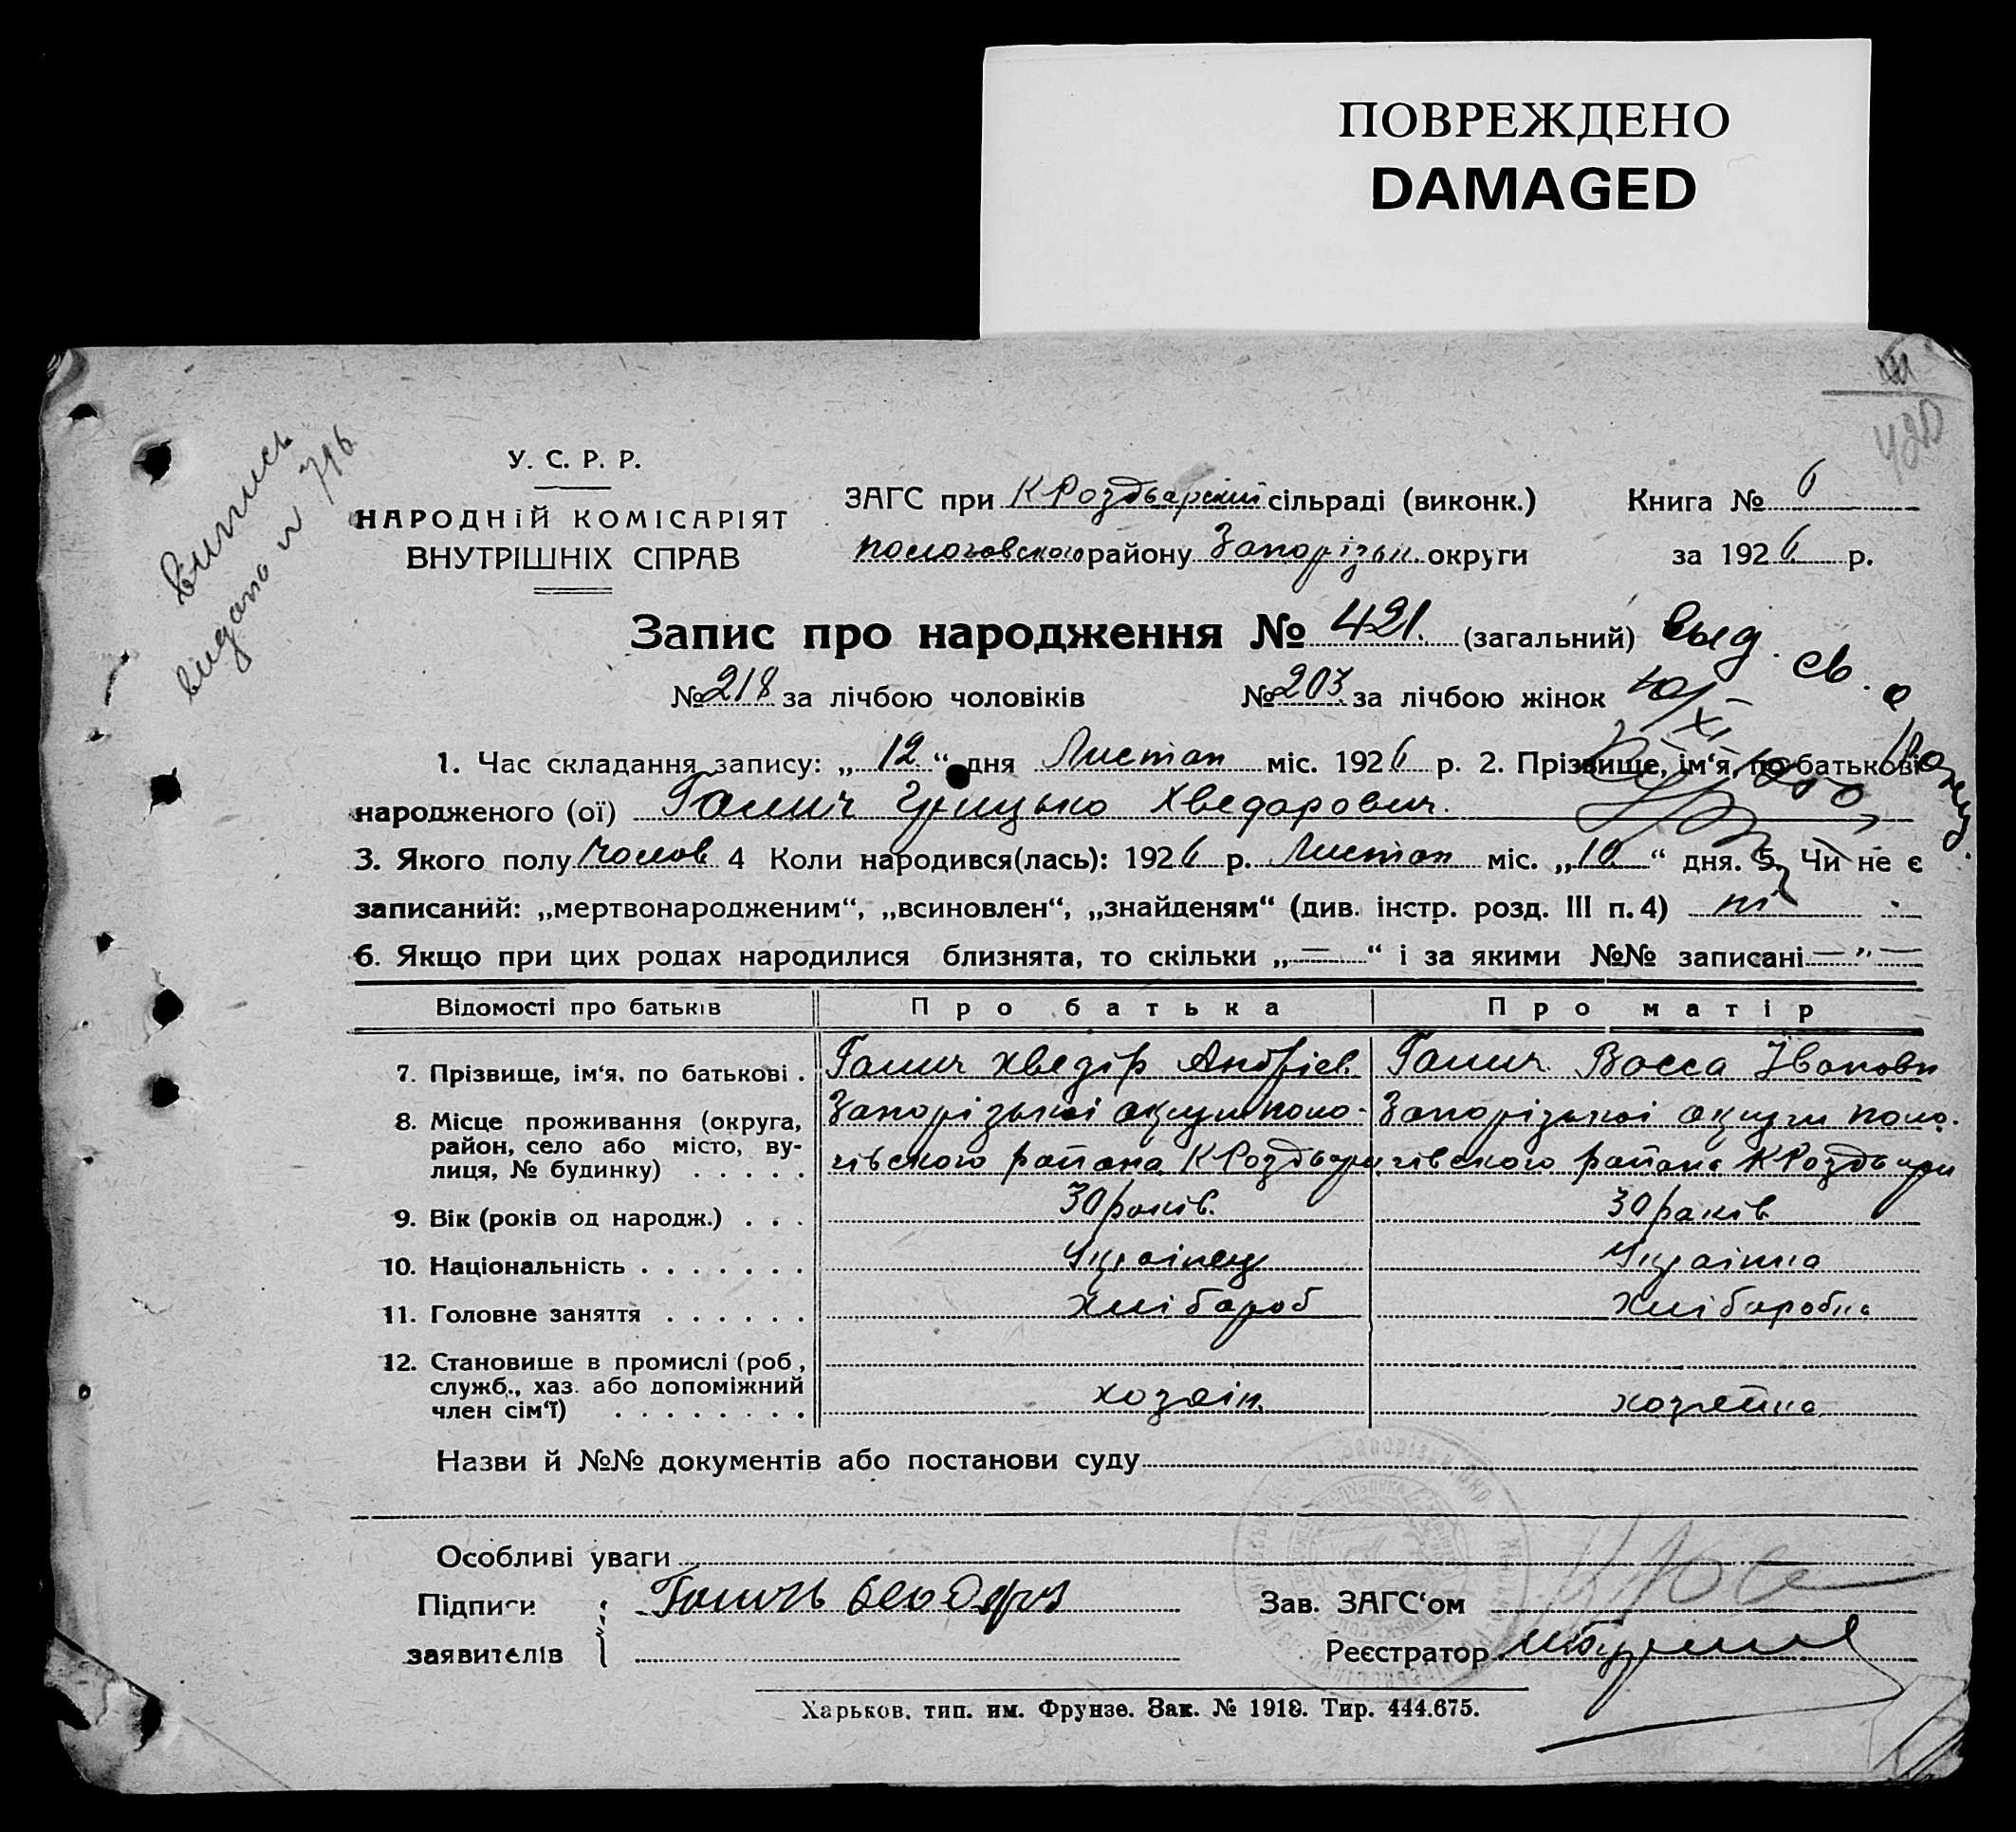 ПОВРЕЖДЕНО
DAMAGED
Випись
видано № 716
У. С. Р. Р.
НАРОДНІЙ КОМІСАРІЯТ
ВНУТРІШНІХ СПРАВ
ЗАГС при К Роздварский сільраді (виконк.) Книга № 6
пологовского району Запорізьк. округи за 1926 р.
420
Запис про народження № 421. (загальний) Выд. св. о
№ 218 за лічбою чоловіків № 203 за лічбою жінок
1. Час складання запису: „12“ дня Листоп міс. 1926 р. 2. Прізвище, ім‘я, по батькові
народженого (ої) Галич Грицько Хведорович.
3. Якого полу Чолов 4 Коли народився(лась): 1926 р. Листоп міс. „10“ дня. 5. Чи не є
записаний: „мертвонародженим“, „всиновлен“, „знайденям“ (див. інстр. розд. III п. 4) ні
6. Якщо при цих родах народилися близнята, то скільки „—“ і за якими №№ записані — „ —
Відомості про батьків Про батька Про матір
7. Прізвище, ім‘я, по батькові . Галич Хведір Андрієв. Галич Васса Івановн
8. Місце проживання (округа, район, село або місто, вулиця, № будинку) . . . . . Запорізької округи поло- Запорізької округи поло-
гівского района К Роздвори гівского района К Роздвори
9. Вік (років од народж.) . . . 30 років. 30 років
10. Національність . . . . . . . Українец Українка
11. Головне заняття . . . . . . Хлібороб Хліборобка
12. Становише в промислі (роб, служб., хаз. або допоміжний член сім‘ї) . . . . . . . . хозяін. хозяйка
Назви й №№ документів або постанови суду
Особливі уваги
Підписи Галичь Зав. ЗАГС‘ом
заявителів Реєстратор
Харьков. тип. им. Фрунзе. Зак. № 1918. Тир. 444.675.